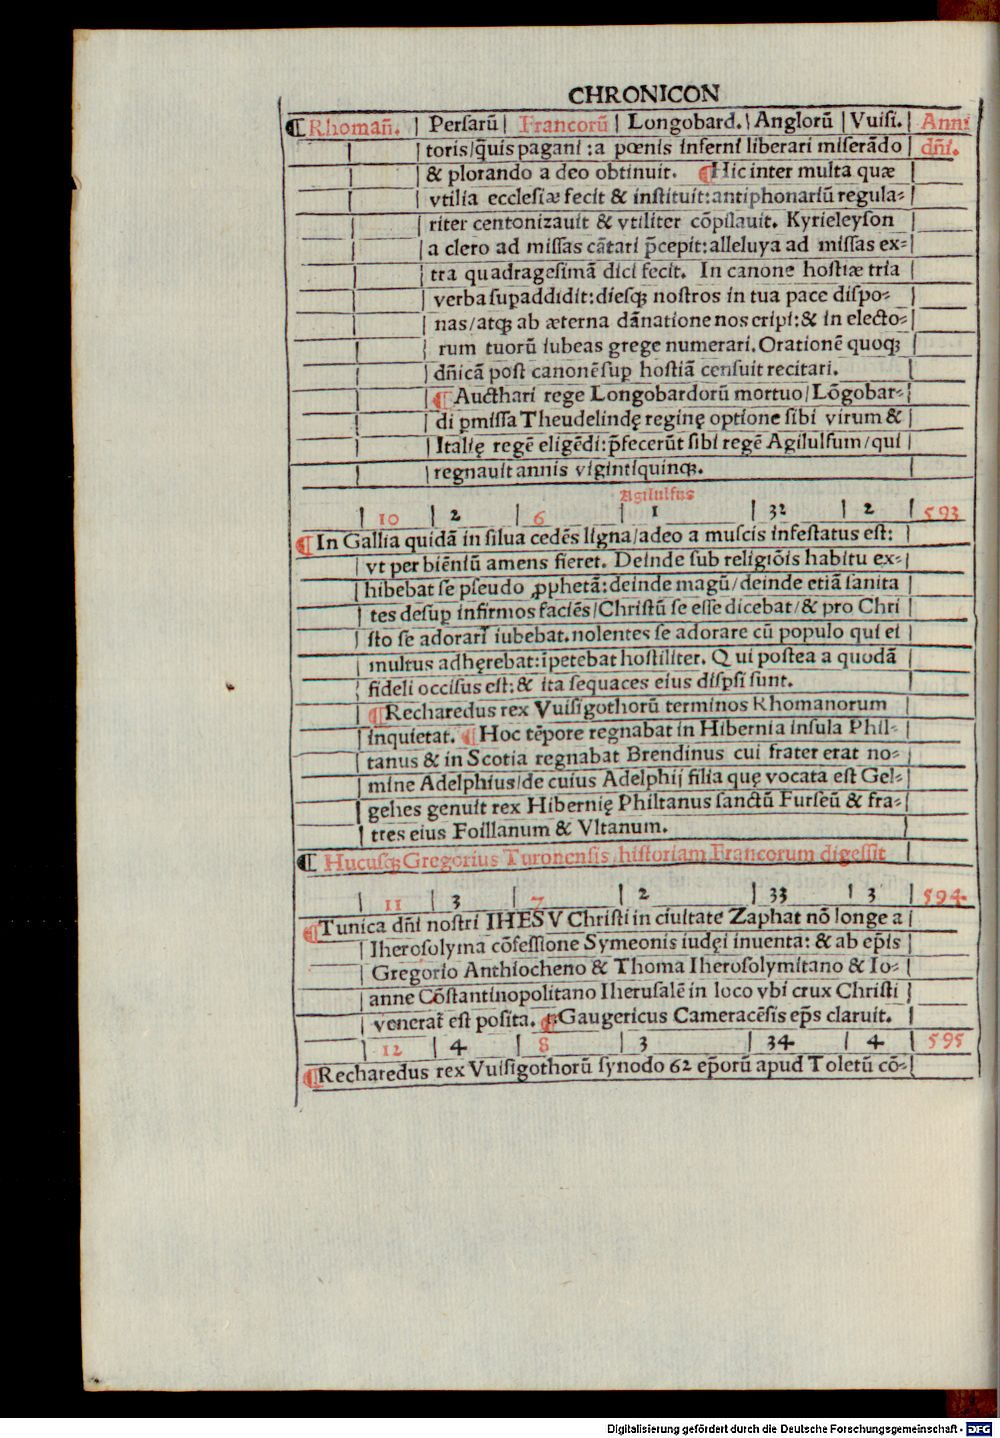 CHRONICON
¶ Rhomañ. | Persarū | Francorū | Longobard. | Anglorū | Vuisi. | Anni
toris/q̃uis pagani : a pœnis inferni liberari miserādo | dñi.
& plorando a deo obtinuit. ¶ Hic inter multa quæ
vtilia ecclesiæ fecit & instituit: antiphonariū regula-
riter centonizauit & vtiliter cōpilauit. Kyrieleyson
a clero ad missas cātari p̃cepit: alleluya ad missas ex-
tra quadragesimā dici fecit. In canone hostiæ tria
verba supaddidit: diesq; nostros in tua pace dispo-
nas/atq; ab æterna dānatione nos eripi: & in electo-
rum tuorū iubeas grege numerari. Orationē quoq;
dñicā post canonē sup hostiā censuit recitari.
¶ Aucthari rege Longobardorū mortuo/Lōgobar-
di pmissa Theudelindę reginę optione sibi virum &
Italię regē eligēdi: p̃fecerūt sibi regē Agilulfum/qui
regnauit annis vigintiquinq;.
Agilulfus
10 | 2 | 6 | 1 | 32 | 2 | 593
¶ In Gallia quidā in silua cedēs ligna/adeo a muscis infestatus est:
vt per biēniū amens fieret. Deinde sub religiōis habitu ex-
hibebat se pseudo pphetā: deinde magū/deinde etiā sanita
tes desup infirmos faciēs/Christū se esse dicebat/& pro Chri
sto se adorari iubebat. nolentes se adorare cū populo qui ei
multus adhęrebat: īpetebat hostiliter. Qui postea a quodā
fideli occisus est: & ita sequaces eius dispsi sunt.
¶ Recharedus rex Vuisigothorū terminos Rhomanorum
inquietat. ¶ Hoc tēpore regnabat in Hibernia insula Phil-
tanus & in Scotia regnabat Brendinus cui frater erat no-
mine Adelphius/de cuius Adelphij filia quę vocata est Gel-
gehes genuit rex Hibernię Philtanus sanctū Furseū & fra-
tres eius Foillanum & Vltanum.
¶ Hucusq; Gregorius Turonensis historiam Francorum digessit
11 | 3 | 7 | 2 | 33 | 3 | 594.
¶ Tunica dñi nostri IHESV Christi in ciuitate Zaphat nō longe a
Iherosolyma cōfessione Symeonis iudęi inuenta: & ab ep̃is
Gregorio Anthiocheno & Thoma Iherosolymitano & Io-
anne Cōstantinopolitano Iherusalē in loco vbi crux Christi
venerat̃ est posita. ¶ Gaugericus Cameracēsis ep̃s claruit.
12 | 4 | 8 | 3 | 34 | 4 | 595
¶ Recharedus rex Vuisigothorū synodo 62 ep̃orū apud Toletū cō-
Digitalisierung gefördert durch die Deutsche Forschungsgemeinschaft - DFG